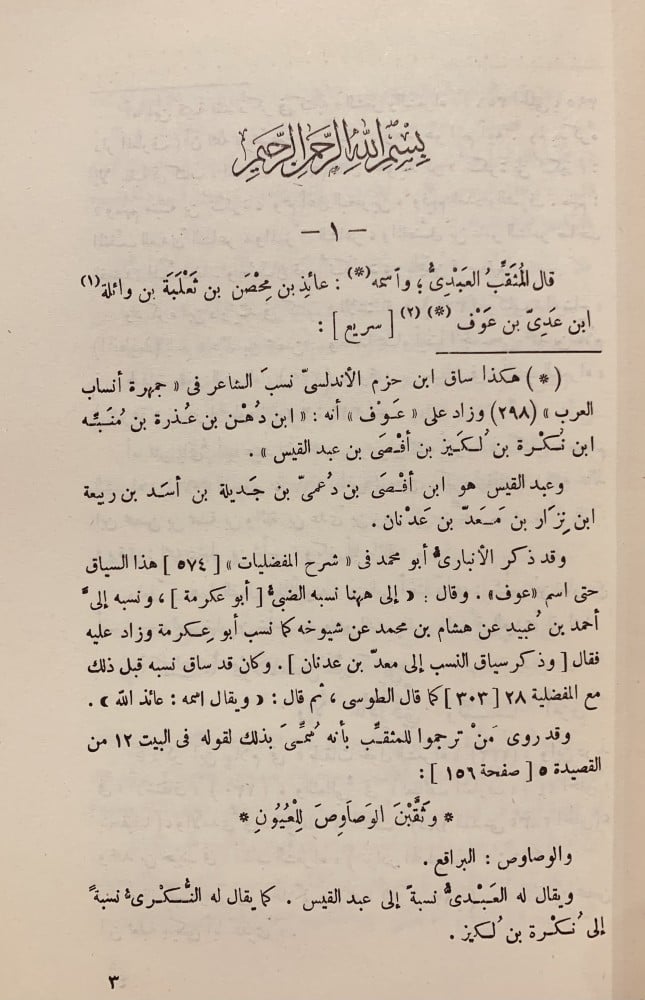 بِسْمِ اللهِ الرَّحْمٰنِ الرَّحِيمِ
— ١ —
قال المُثَقِّبُ العَبْدِىُّ ؛ وٱسمه (*) : عائذ بن مِحْصَن بن ثَعْلَبَة بن وائلة (١)
ابن عَدِىّ بن عَوْف (*) (٢) [ سريع ] :
( * ) هكذا ساق ابن حزم الأندلسىّ نسبَ الشاعر فى « جمهرة أنساب
العرب » (٢٩٨) وزاد على « عَوْف » أنه : « ابن دُهْن بن عُذرة بن مُنَبِّه
ابن نُكْرة بن لُكَيز بن أفْصَى بن عبد القيس » .
وعبد القيس هو ابن أفْصَى بن دُعمىّ بن جَديلة بن أسَد بن ربيعة
ابن نِزَار بن مَعَدّ بن عَدْنان .
وقد ذكر الأنبارىّ أبو محمد فى « شرح المفضليات » [ ٥٧٤ ] هذا السياق
حتى اسم «عوف» . وقال : « إلى ههنا نسبه الضبىّ [ أبو عكرمة ] ، ونسبه إلىَّ
أحمد بن عُبيد عن هشام بن محمد عن شيوخه كما نسب أبو عِكرمة وزاد عليه
فقال [ وذكر سياق النسب إلى معدّ بن عدنان ] . وكان قد ساق نسبه قبل ذلك
مع المفضلية ٢٨ [ ٣٠٣ ] كما قال الطوسى ، ثم قال : « ويقال اسمه : عائذ الله » .
وقد روى مَنْ ترجموا للمثقِّب بأنه سُمِّىَ بذلك لقوله فى البيت ١٢ من
القصيدة ٥ [ صفحة ١٥٦ ] :
* وَثَقَّبْنَ الوَصَاوِصَ لِلْعُيُونِ *
والوصاوص : البراقع .
ويقال له العَبْدىُّ نسبةً إلى عبد القيس . كما يقال له النُّكْرىُّ نسبةً
إلى نُكْرة بن لُكيز .
٣